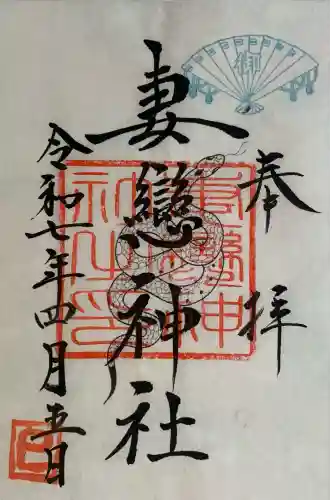 奉拝
妻戀神社
令和七年四月五日